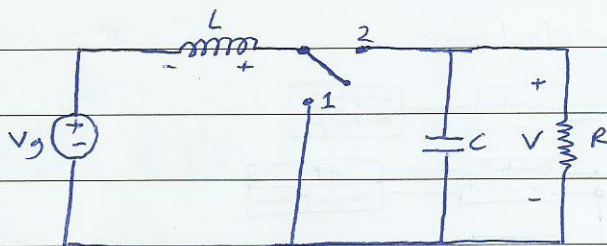 L
2
- +
1
+
Vg + -
C V R
-